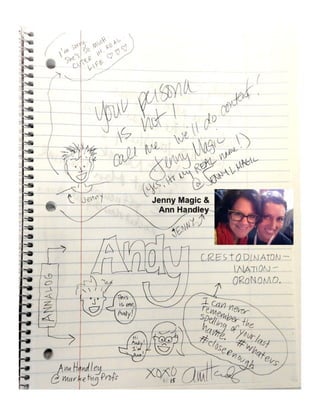 I'm sorry
She's so much
cuter in real
life ♡♡♡
Your persona
is hot!
call me.. we'll do content!
Jenny Magic
(yes, it's my REAL name!)
@
Jenny
Jenny Magic &
Ann Handley
JENNY
Andy
CRESTODINATON-
INATION-
ORONOMO.
ANNALOG
This
is me,
Andy!
Hi
Andy!
I'm
Ann!
I can never
remember the
spelling of your last
name. #whatevs
#closeenough
Ann Handley
@marketingprofs
XOXO
15